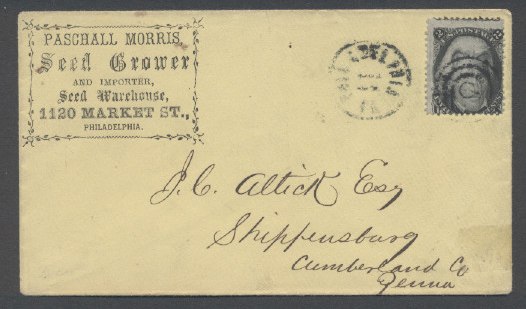 PASCHALL MORRIS,
Seed Grower
AND IMPORTER,
Seed Warehouse,
1120 MARKET ST.,
PHILADELPHIA.
PHILADELPHIA
U.S. POSTAGE
J. C. Altick Esq
Shippensburg
Cumberland Co
Penna